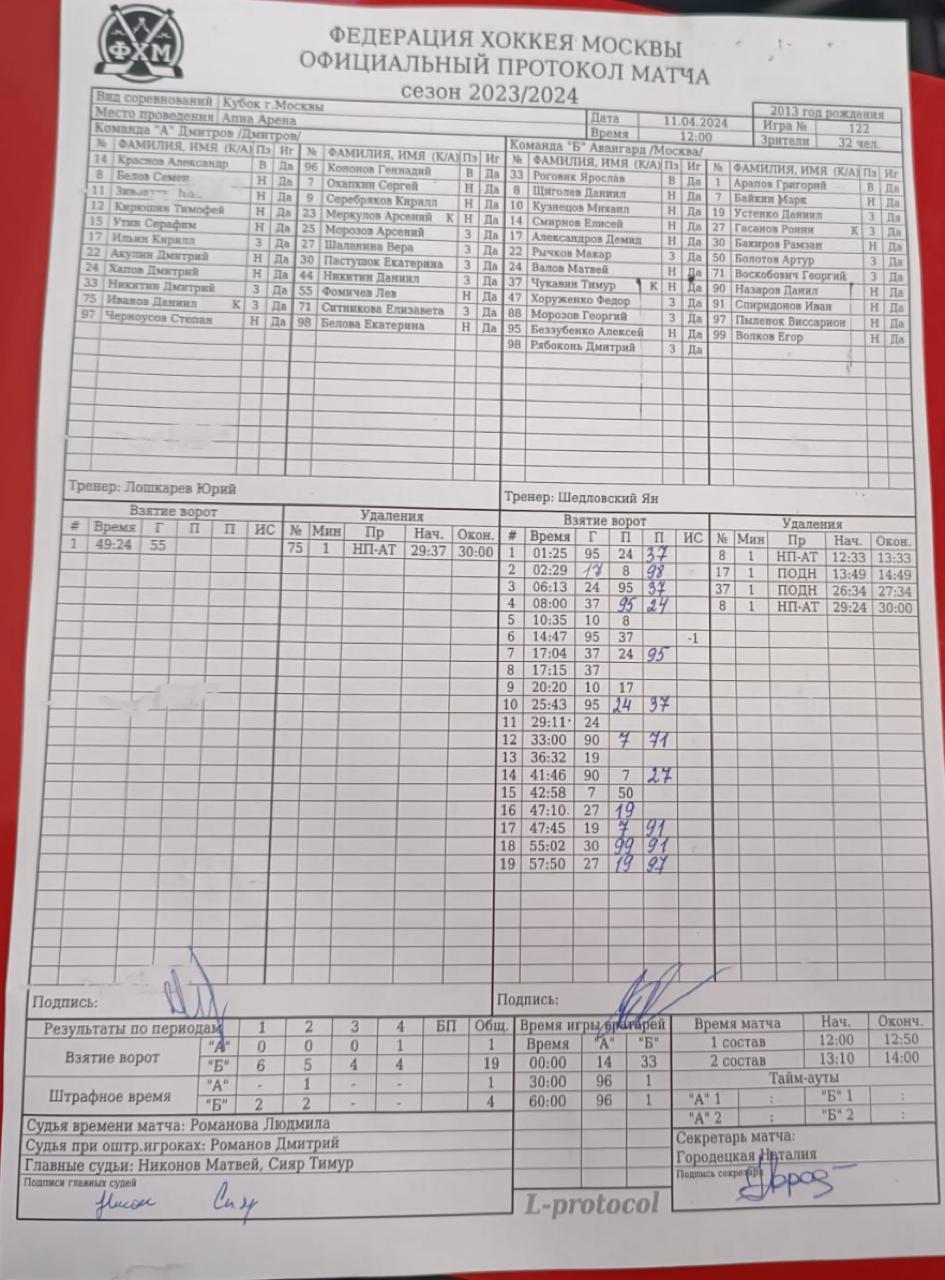 ФХМ
ФЕДЕРАЦИЯ ХОККЕЯ МОСКВЫ
ОФИЦИАЛЬНЫЙ ПРОТОКОЛ МАТЧА
сезон 2023/2024
Вид соревнований Кубок г.Москвы Дата 11.04.2024 2013 год рождения
Место проведения Апиа Арена Время 12:00 Игра № 122
Зрители 32 чел.
Команда "А" Дмитров /Дмитров/
№ ФАМИЛИЯ, ИМЯ (К/А) Пз Иг № ФАМИЛИЯ, ИМЯ (К/А) Пз Иг
14 Краснов Александр В Да 96 Кононов Геннадий В Да
8 Белов Семен Н Да 7 Охапкин Сергей Н Да
11 Н Да 9 Серебряков Кирилл Н Да
12 Кирюшин Тимофей Н Да 23 Меркулов Арсений К Н Да
15 Утин Серафим Н Да 25 Морозов Арсений З Да
17 Ильин Кирилл З Да 27 Шаланина Вера З Да
22 Акулин Дмитрий Н Да 30 Пастушок Екатерина З Да
24 Хапов Дмитрий Н Да 44 Никитин Даниил З Да
33 Никитин Дмитрий З Да 55 Фомичев Лев Н Да
75 Иванов Даниил К З Да 71 Ситникова Елизавета З Да
97 Черноусов Степан Н Да 98 Белова Екатерина Н Да
Команда "Б" Авангард /Москва/
№ ФАМИЛИЯ, ИМЯ (К/А) Пз Иг № ФАМИЛИЯ, ИМЯ (К/А) Пз Иг
33 Роговик Ярослав В Да 1 Арапов Григорий В Да
8 Щиголев Даниил Н Да 7 Байкин Марк Н Да
10 Кузнецов Михаил Н Да 19 Устенко Даниил З Да
14 Смирнов Елисей Н Да 27 Гасанов Ронни К З Да
17 Александров Демид Н Да 30 Бакиров Рамзан Н Да
22 Рычков Макар З Да 50 Болотов Артур З Да
24 Валов Матвей Н Да 71 Воскобович Георгий З Да
37 Чукавин Тимур К Н Да 90 Назаров Данил Н Да
47 Хоруженко Федор З Да 91 Спиридонов Иван Н Да
88 Морозов Георгий З Да 97 Пыленок Виссарион Н Да
95 Беззубенко Алексей Н Да 99 Волков Егор Н Да
98 Рябоконь Дмитрий З Да
Тренер: Лошкарев Юрий
Взятие ворот Удаления
# Время Г П П ИС № Мин Пр Нач. Окон.
1 49:24 55 75 1 НП-АТ 29:37 30:00
Тренер: Шедловский Ян
Взятие ворот Удаления
# Время Г П П ИС № Мин Пр Нач. Окон.
1 01:25 95 24 37 8 1 НП-АТ 12:33 13:33
2 02:29 17 8 98 17 1 ПОДН 13:49 14:49
3 06:13 24 95 37 37 1 ПОДН 26:34 27:34
4 08:00 37 95 24 8 1 НП-АТ 29:24 30:00
5 10:35 10 8
6 14:47 95 37 -1
7 17:04 37 24 95
8 17:15 37
9 20:20 10 17
10 25:43 95 24 37
11 29:11 24
12 33:00 90 7 71
13 36:32 19
14 41:46 90 7 27
15 42:58 7 50
16 47:10 27 19
17 47:45 19 7 91
18 55:02 30 99 91
19 57:50 27 19 97
Подпись: Подпись:
Результаты по периодам 1 2 3 4 БП Общ.
Взятие ворот "А" 0 0 0 1 1
"Б" 6 5 4 4 19
Штрафное время "А" - 1 - - 1
"Б" 2 2 - - 4
Время игры вратарей
Время "А" "Б"
00:00 14 33
30:00 96 1
60:00 96 1
Время матча Нач. Оконч.
1 состав 12:00 12:50
2 состав 13:10 14:00
Тайм-ауты
"А" 1 : "Б" 1 :
"А" 2 : "Б" 2 :
Судья времени матча: Романова Людмила
Судья при оштр.игроках: Романов Дмитрий
Главные судьи: Никонов Матвей, Сияр Тимур
Подписи главных судей
Секретарь матча:
Городецкая Наталия
Подпись секретаря
L-protocol